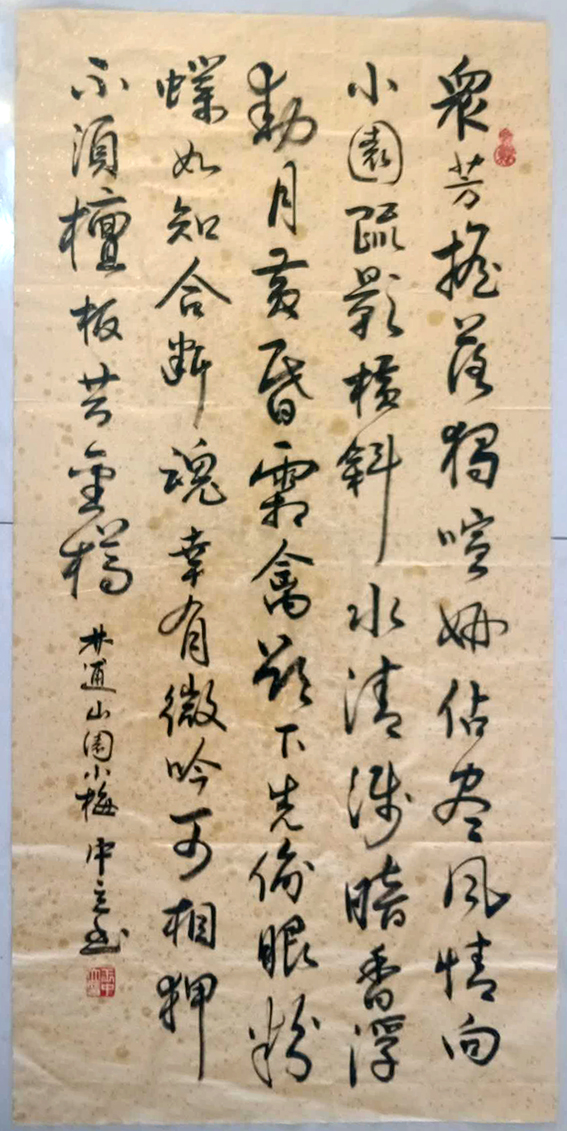 衆芳摇落獨喧妍佔尽風情向
小園疏影橫斜水清淺暗香浮
動月黃昏霜禽欲下先偷眼粉
蝶如知合斷魂幸有微吟可相狎
不須檀板共金樽
林逋山園小梅 中立书